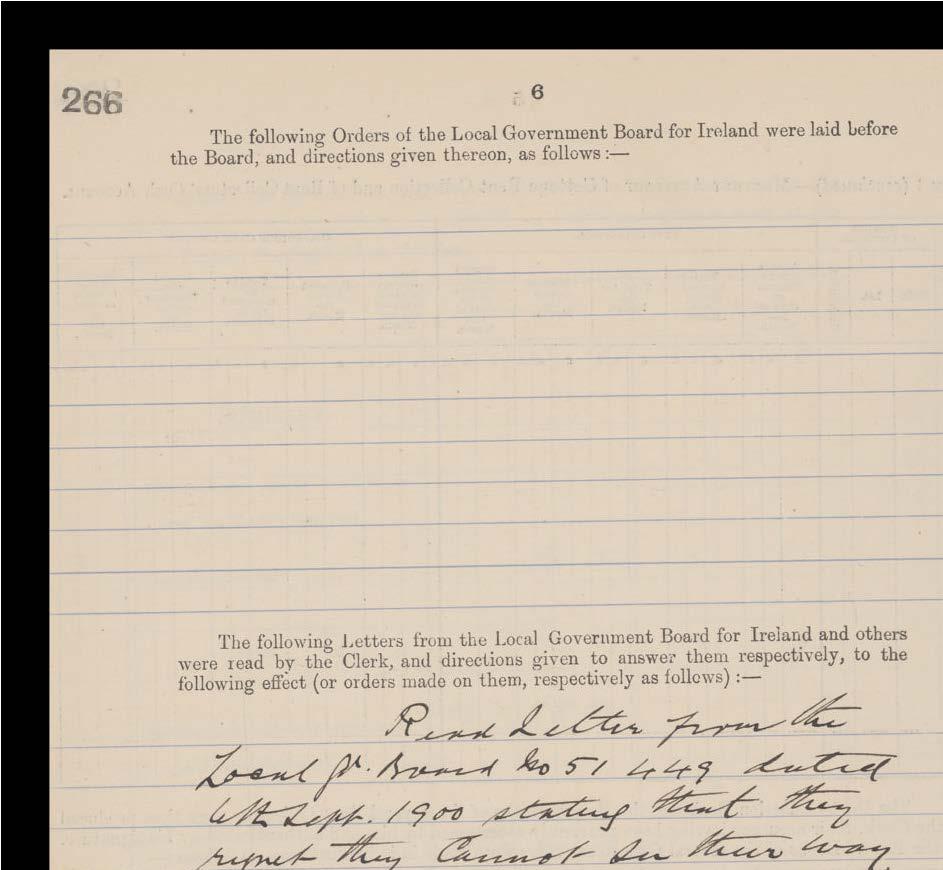 266
6
The following Orders of the Local Government Board for Ireland were laid before
the Board, and directions given thereon, as follows :—
The following Letters from the Local Government Board for Ireland and others
were read by the Clerk, and directions given to answer them respectively, to the
following effect (or orders made on them, respectively as follows) :—
Read Letter from the
Local Gt. Board No 51 449 dated
6th Sept. 1900 stating that they
regret they Cannot see their way